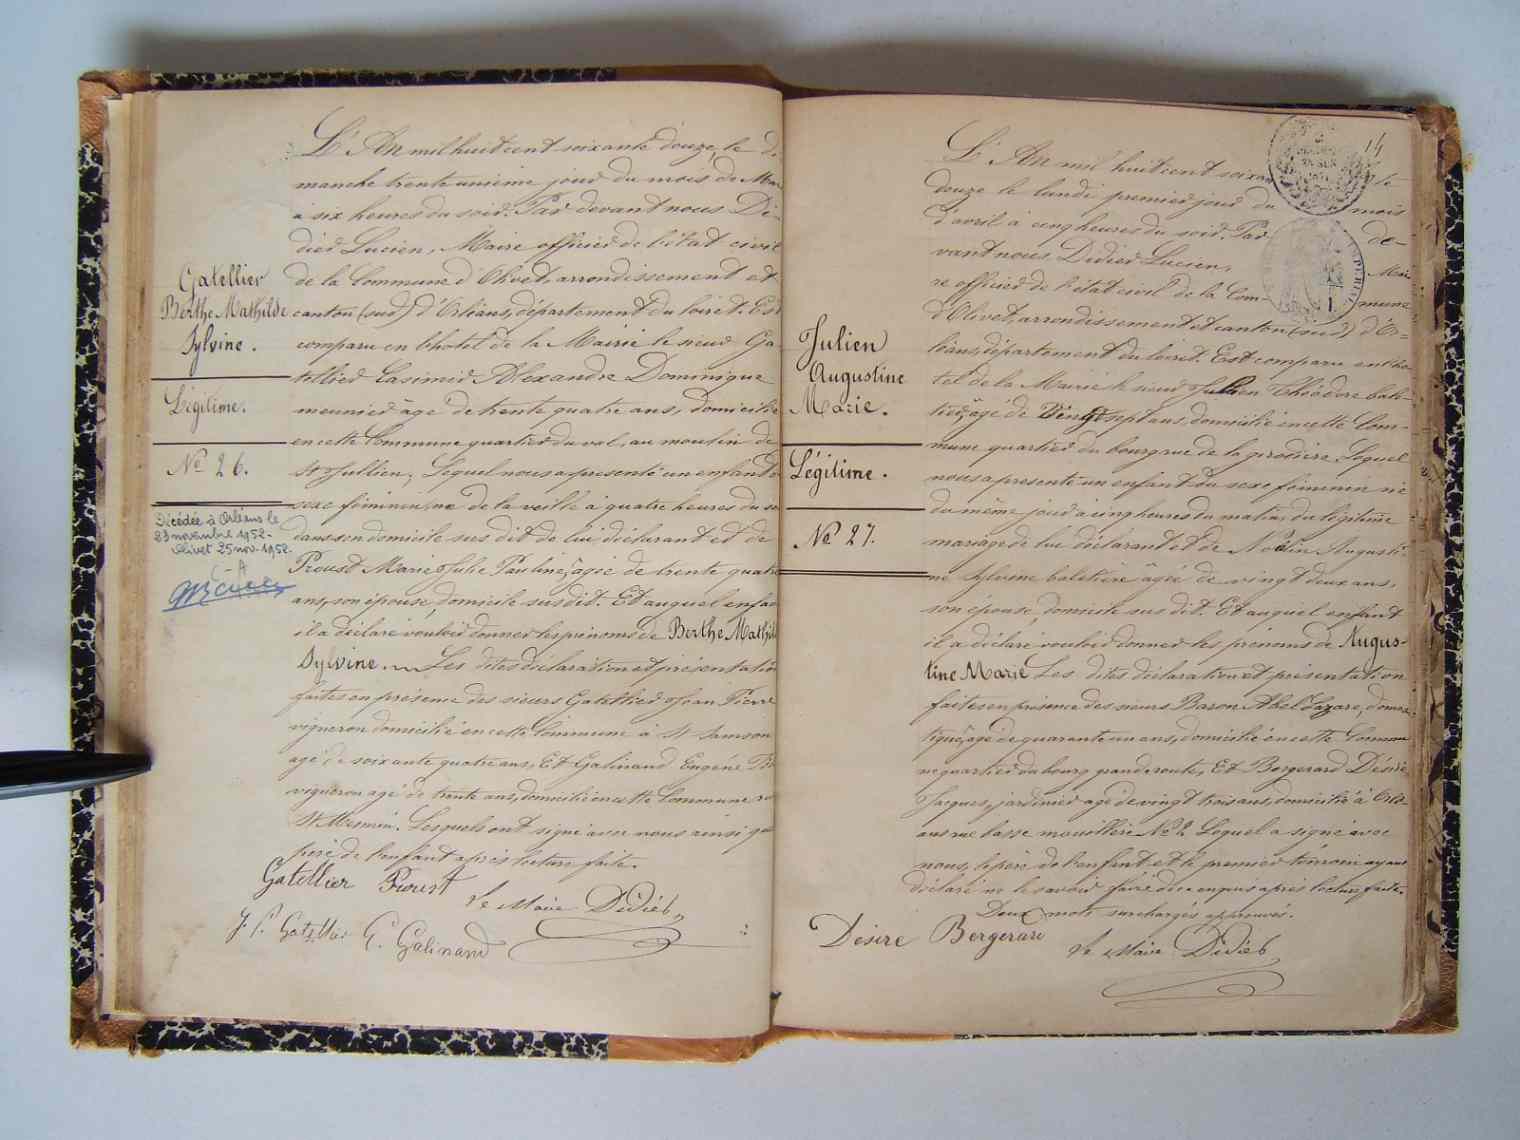 Gatellier
Berthe Mathilde
Sylvine.
Légitime.
Nº 26.
Décédée à Orléans le
23 novembre 1952-
Olivet 25 nov. 1952.
L'An mil huit cent soixante douze, le di
manche trente unième jour du mois de Mar
à six heures du soir. Par devant nous Di-
dier Lucien, Maire officier de l'état civil
de la Commune d'Olivet, arrondissement et
canton (sud) d'Orléans, département du loiret. Est
comparu en l'hotel de la Mairie le sieur Ga
tellier Casimir Alexandre Dominique
meunier âgé de trente quatre ans, domicilié
en cette Commune quartier du val, au moulin de
St Jullien, Lequel nous a présenté un enfant d
sexe féminin, né de la veille à quatre heures du so
dans son domicile sus dit de lui déclarant et de
Proust Marie Julie Pauline, âgée de trente quatre
ans, son épouse, domicile sus dit. Et auquel enfan
il a déclaré vouloir donner les prénoms de Berthe Mathil
Sylvine. Les dites déclaration et présentation
faites en présence des sieurs Gatellier Jean Pierre
vigneron domicilié en cette Commune à St Samson
agé de soixante quatre ans, Et Galinand Eugène
vigneron agé de trente ans, domicilié en cette Commune
St Mesmin. Lesquels ont signé avec nous ainsi que
père de l'enfant après lecture faite.
Gatellier Proust
Le Maire Didier
J. P. Gatellier E. Galinand
14
Julien
Augustine
Marie.
Légitime.
Nº 27.
L'An mil huit cent soixan le
douze le lundi premier jour du mois
d'avril à cinq heures du soir. Par de-
vant nous Didier Lucien, Mai
re officier de l'état civil de la Com- mune
d'Olivet, arrondissement et canton (sud) d'Or-
léans, département du loiret. Est comparu en l'ho-
tel de la Mairie le sieur Julien Théodore bale-
tier, âgé de Vingt sept ans, domicilié en cette Com-
mune quartier du bourg rue de la Lequel
nous a présenté un enfant du sexe féminin né
du même jour à cinq heures du matin, du légitime
mariage de lui déclarant et de Nodin Augusti-
ne Sylvine baletière âgée de vingt deux ans,
son épouse, domicile sus dit. Et auquel enfant
il a déclaré vouloir donner les prénoms de Augus-
tine Marie Les dites déclaration et présentation
faites en présence des sieurs Baron Abel Lazare, domes-
tique, agé de quarante un ans, domicilié en cette Commu
ne quartier du bourg grande route, Et Bergerard Désiré
Jacques, jardinier agé de vingt trois ans, domicilié à Orlé-
ans rue basse mouillère Nº 2 Lequel a signé avec
nous, le père de l'enfant et le premier témoin ayant
déclaré ne le savoir faire de ce enquis après lecture faite.
Deux mots surchargés approuvés.
Desire Bergerard
Le Maire Didier